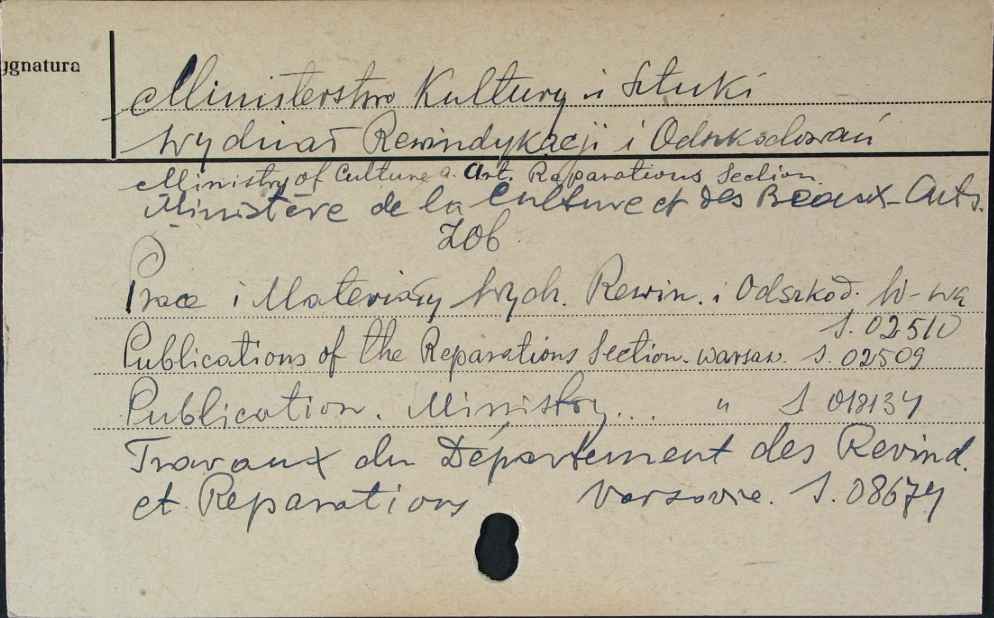 ygnatura
Ministerstwo Kultury i Sztuki
Wydział Rewindykacji i Odszkodowań
Ministry of Culture a. Art. Raparations Section
Ministère de la Culture et des Beaux-Arts.
Zob
Prace i Materiały Wydz. Rewin. i Odszkod. W-wa
S. 02510
Publications of the Reparations Section. Warsaw. S. 02509
Publication. Ministry... " S 018134
Travaux du Département des Revind.
et Reparations Varsovie. S. 08674